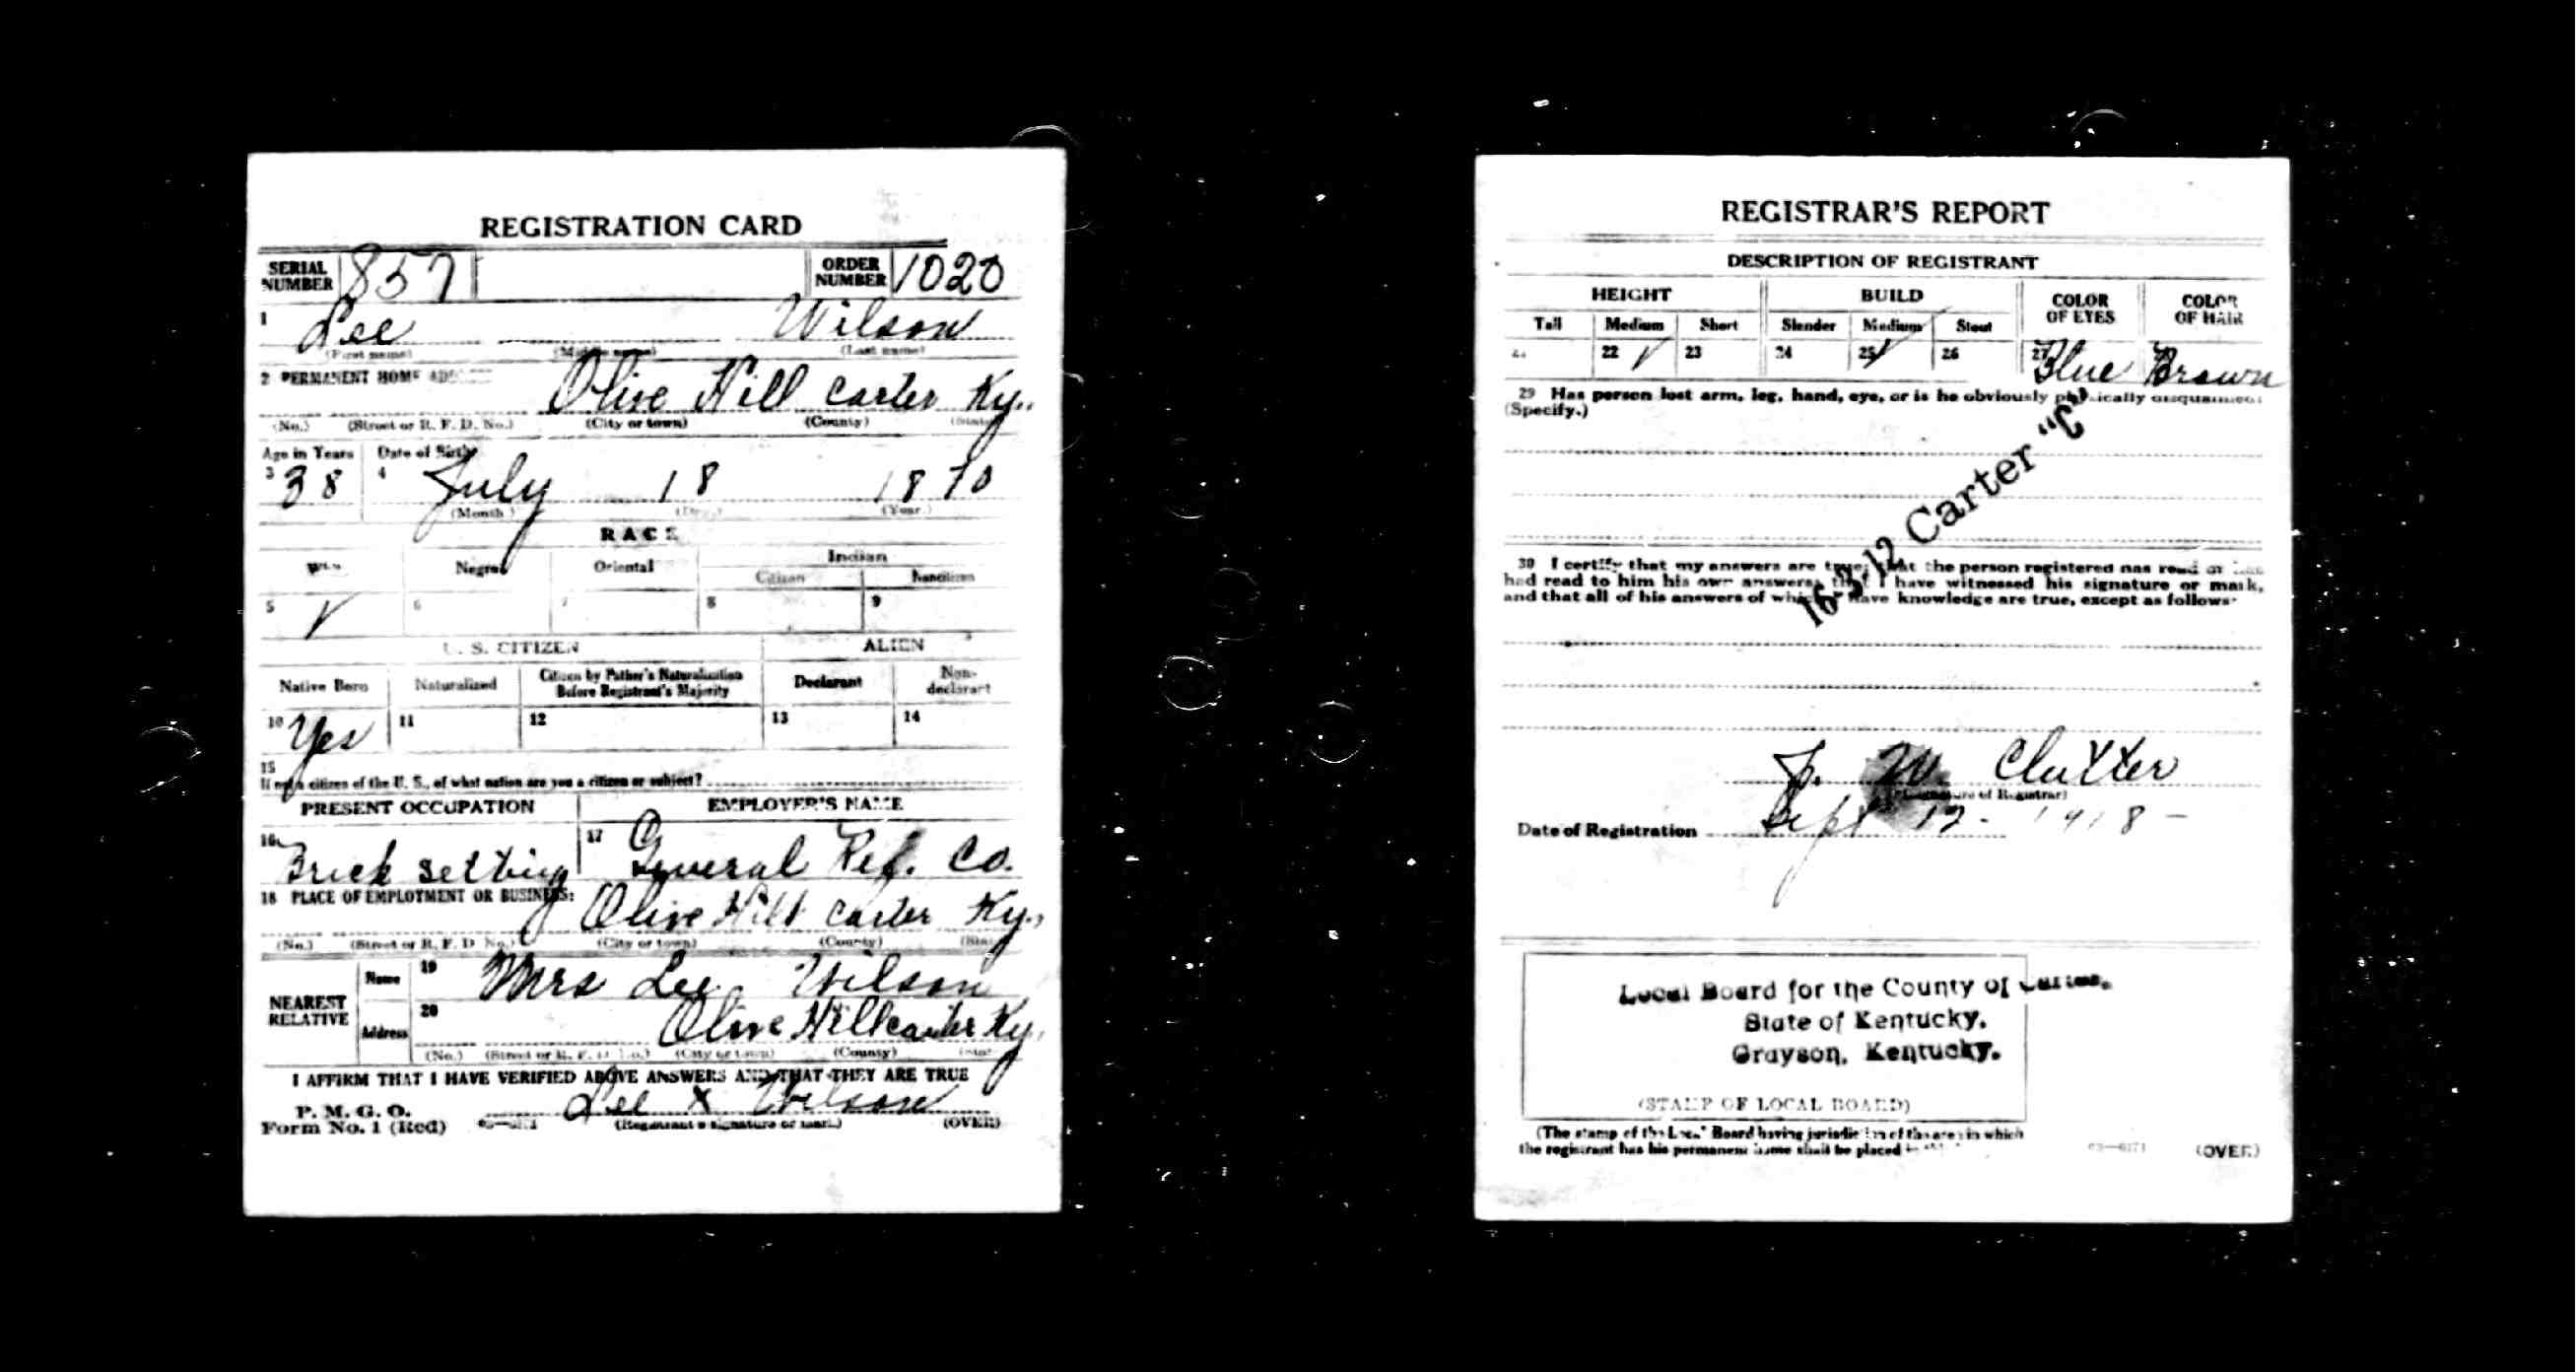 REGISTRATION CARD
SERIAL NUMBER 857 ORDER NUMBER 1020
1 Lee Wilson
(First name) (Middle name) (Last name)
2 PERMANENT HOME
Olive Hill Carter Ky.
(No.) (Street or R. F. D. No.) (City or town) (County) (State)
Age in Years Date of Birth
3 38 4 July 18 1870
(Month) (Day) (Year.)
RACE
Negro Oriental Indian
Citizen Noncitizen
5 ✓ 6 7 8 9
U. S. CITIZEN ALIEN
Native Born Naturalized Citizen by Father's Naturalization Before Registrant's Majority Declarant Non-declarant
10 Yes 11 12 13 14
15
If not a citizen of the U. S., of what nation are you a citizen or subject?
PRESENT OCCUPATION EMPLOYER'S NAME
16 Brick setting 17 General Ref. Co.
18 PLACE OF EMPLOYMENT OR BUSINESS:
Olive Hill Carter Ky.
(No.) (Street or R. F. D. No.) (City or town) (County)
NEAREST RELATIVE
Name 19 Mrs Lee Wilson
Address 20 Olive Hill Carter Ky.
(No.) (Street or R. F. D. No.) (City or town) (County)
I AFFIRM THAT I HAVE VERIFIED ABOVE ANSWERS AND THAT THEY ARE TRUE
P. M. G. O.
Form No. 1 (Red) Lee X Wilson
(Registrant's signature or mark) (OVER)
REGISTRAR'S REPORT
DESCRIPTION OF REGISTRANT
HEIGHT BUILD COLOR OF EYES COLOR OF HAIR
Tall Medium Short Slender Medium Stout
22 ✓ 23 24 25 ✓ 26 27 Blue Brown
29 Has person lost arm, leg, hand, eye, or is he obviously physically disqualified?
(Specify.)
16-3-12 Carter "C"
30 I certify that my answers are true; that the person registered has read or has
had read to him his own answers; that I have witnessed his signature or mark,
and that all of his answers of which I have knowledge are true, except as follows:
W. Clutter
(Signature of Registrar)
Date of Registration Sept 12 - 1918 -
Local Board for the County of Carter,
State of Kentucky.
Grayson, Kentucky.
(STAMP OF LOCAL BOARD)
(The stamp of the Local Board having jurisdiction of the area in which
the registrant has his permanent home shall be placed
(OVER)